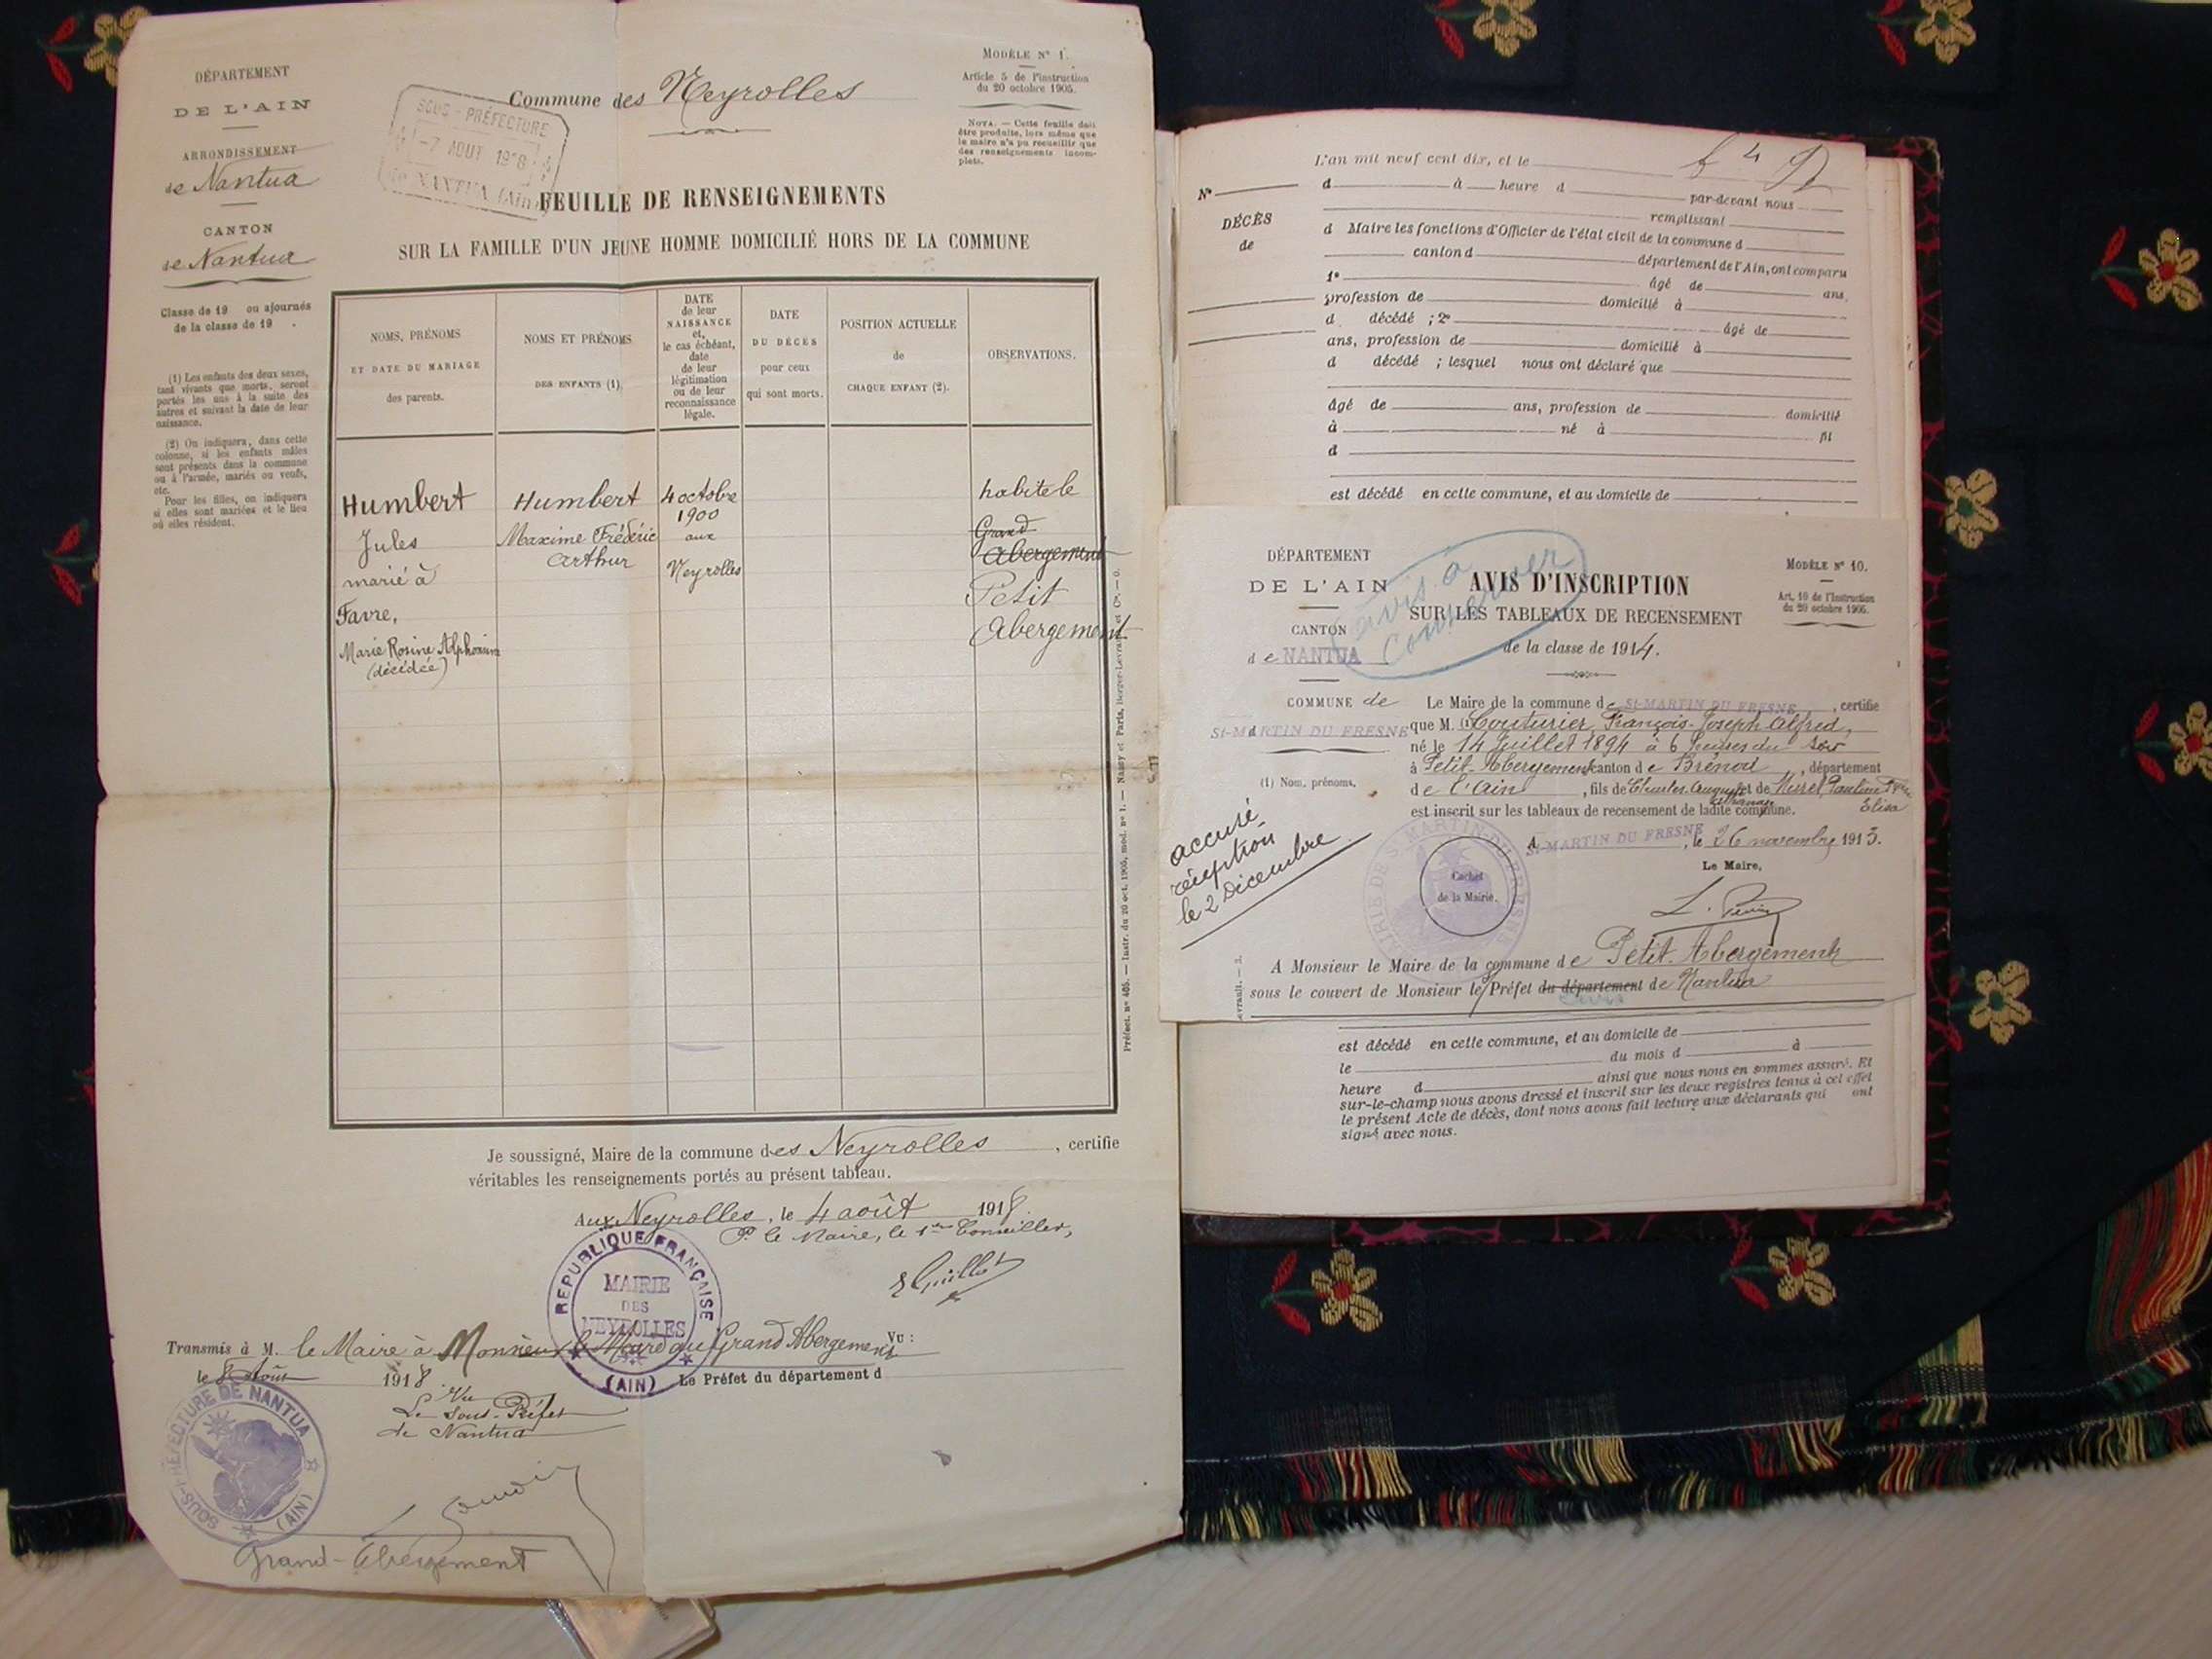 DÉPARTEMENT
DE L'AIN
ARRONDISSEMENT
de Nantua
CANTON
de Nantua
Classe de 19 ou ajournés
de la classe de 19 .
(1) Les enfants des deux sexes,
tant vivants que morts, seront
portés les uns à la suite des
autres et suivant la date de leur
naissance.
(2) On indiquera, dans cette
colonne, si les enfants mâles
sont présents dans la commune
ou à l'armée, mariés ou veufs,
etc.
Pour les filles, on indiquera
si elles sont mariées et le lieu
où elles résident.
Commune des Neyrolles
SOUS-PRÉFECTURE
-7 AOUT 1918
de NANTUA (Ain)
MODÈLE N° 1.
Article 5 de l'instruction
du 20 octobre 1905.
NOTA. — Cette feuille doit
être produite, lors même que
le maire n'a pu recueillir que
des renseignements incom-
plets.
FEUILLE DE RENSEIGNEMENTS
SUR LA FAMILLE D'UN JEUNE HOMME DOMICILIÉ HORS DE LA COMMUNE
NOMS, PRÉNOMS
ET DATE DU MARIAGE
des parents.
NOMS ET PRÉNOMS
DES ENFANTS (1).
DATE
de leur
NAISSANCE
et,
le cas échéant,
date
de leur
légitimation
ou de leur
reconnaissance
légale.
DATE
DU DÉCÈS
pour ceux
qui sont morts.
POSITION ACTUELLE
de
CHAQUE ENFANT (2).
OBSERVATIONS.
Humbert
Jules
marié à
Favre,
Marie Rosine Alphonsine
(décédée)
Humbert
Maxime Frédéric
Arthur
4 octobre
1900
aux
Neyrolles
habite le
Grand
Abergement
Petit
Abergement
Préfect. n° 405. — Instr. du 20 oct. 1905, mod. n° 1. — Nancy et Paris, Berger-Levrault et Cie. — 6.
Je soussigné, Maire de la commune des Neyrolles , certifie
véritables les renseignements portés au présent tableau.
Aux Neyrolles, le 4 août 1918
P. le Maire, le 1er Conseiller,
REPUBLIQUE FRANÇAISE
MAIRIE
DES
NEYROLLES
(AIN)
Transmis à M. le Maire à Monsieur le Maire du Grand Abergement
le 8 Août 1918
Vu :
Le Préfet du département d
Vu
Le Sous-Préfet
de Nantua
SOUS-PRÉFECTURE DE NANTUA
(AIN)
Grand-Abergement
L'an mil neuf cent dix, et le
N°
d à heure d
par-devant nous
DÉCÈS
de
remplissant
d Maire les fonctions d'Officier de l'état civil de la commune d
canton d département de l'Ain, ont comparu
1° âgé de ans,
profession de domicilié à
d décédé ; 2° âgé de
ans, profession de domicilié à
d décédé ; lesquel nous ont déclaré que
âgé de ans, profession de domicilié
à né à fil
d
est décédé en cette commune, et au domicile de
DÉPARTEMENT
DE L'AIN
CANTON
de NANTUA
COMMUNE de
St-MARTIN DU FRESNE
(1) Nom, prénoms.
avis à
conserver
AVIS D'INSCRIPTION
SUR LES TABLEAUX DE RECENSEMENT
de la classe de 1914.
MODÈLE N° 10.
Art. 10 de l'Instruction
du 20 octobre 1905.
Le Maire de la commune de St-MARTIN DU FRESNE , certifie
que M. (1) Couturier, François-Joseph Alfred,
né le 14 Juillet 1894 à 6 heures du soir
à Petit-Abergement canton de Brénod , département
de l'Ain , fils de Charles Auguste et de Pauline
Elisa
est inscrit sur les tableaux de recensement de ladite commune.
A St-MARTIN DU FRESNE , le 26 novembre 1913.
Le Maire,
MAIRIE DE ST-MARTIN-DU-FRESNE
Cachet
de la Mairie.
accusé
réception
le 2 Décembre
A Monsieur le Maire de la commune de Petit-Abergement
sous le couvert de Monsieur le Préfet du département de Nantua
est décédé en cette commune, et au domicile de
le du mois d à
heure d ainsi que nous nous en sommes assuré. Et
sur-le-champ nous avons dressé et inscrit sur les deux registres tenus à cet effet
le présent Acte de décès, dont nous avons fait lecture aux déclarants qui ont
signé avec nous.